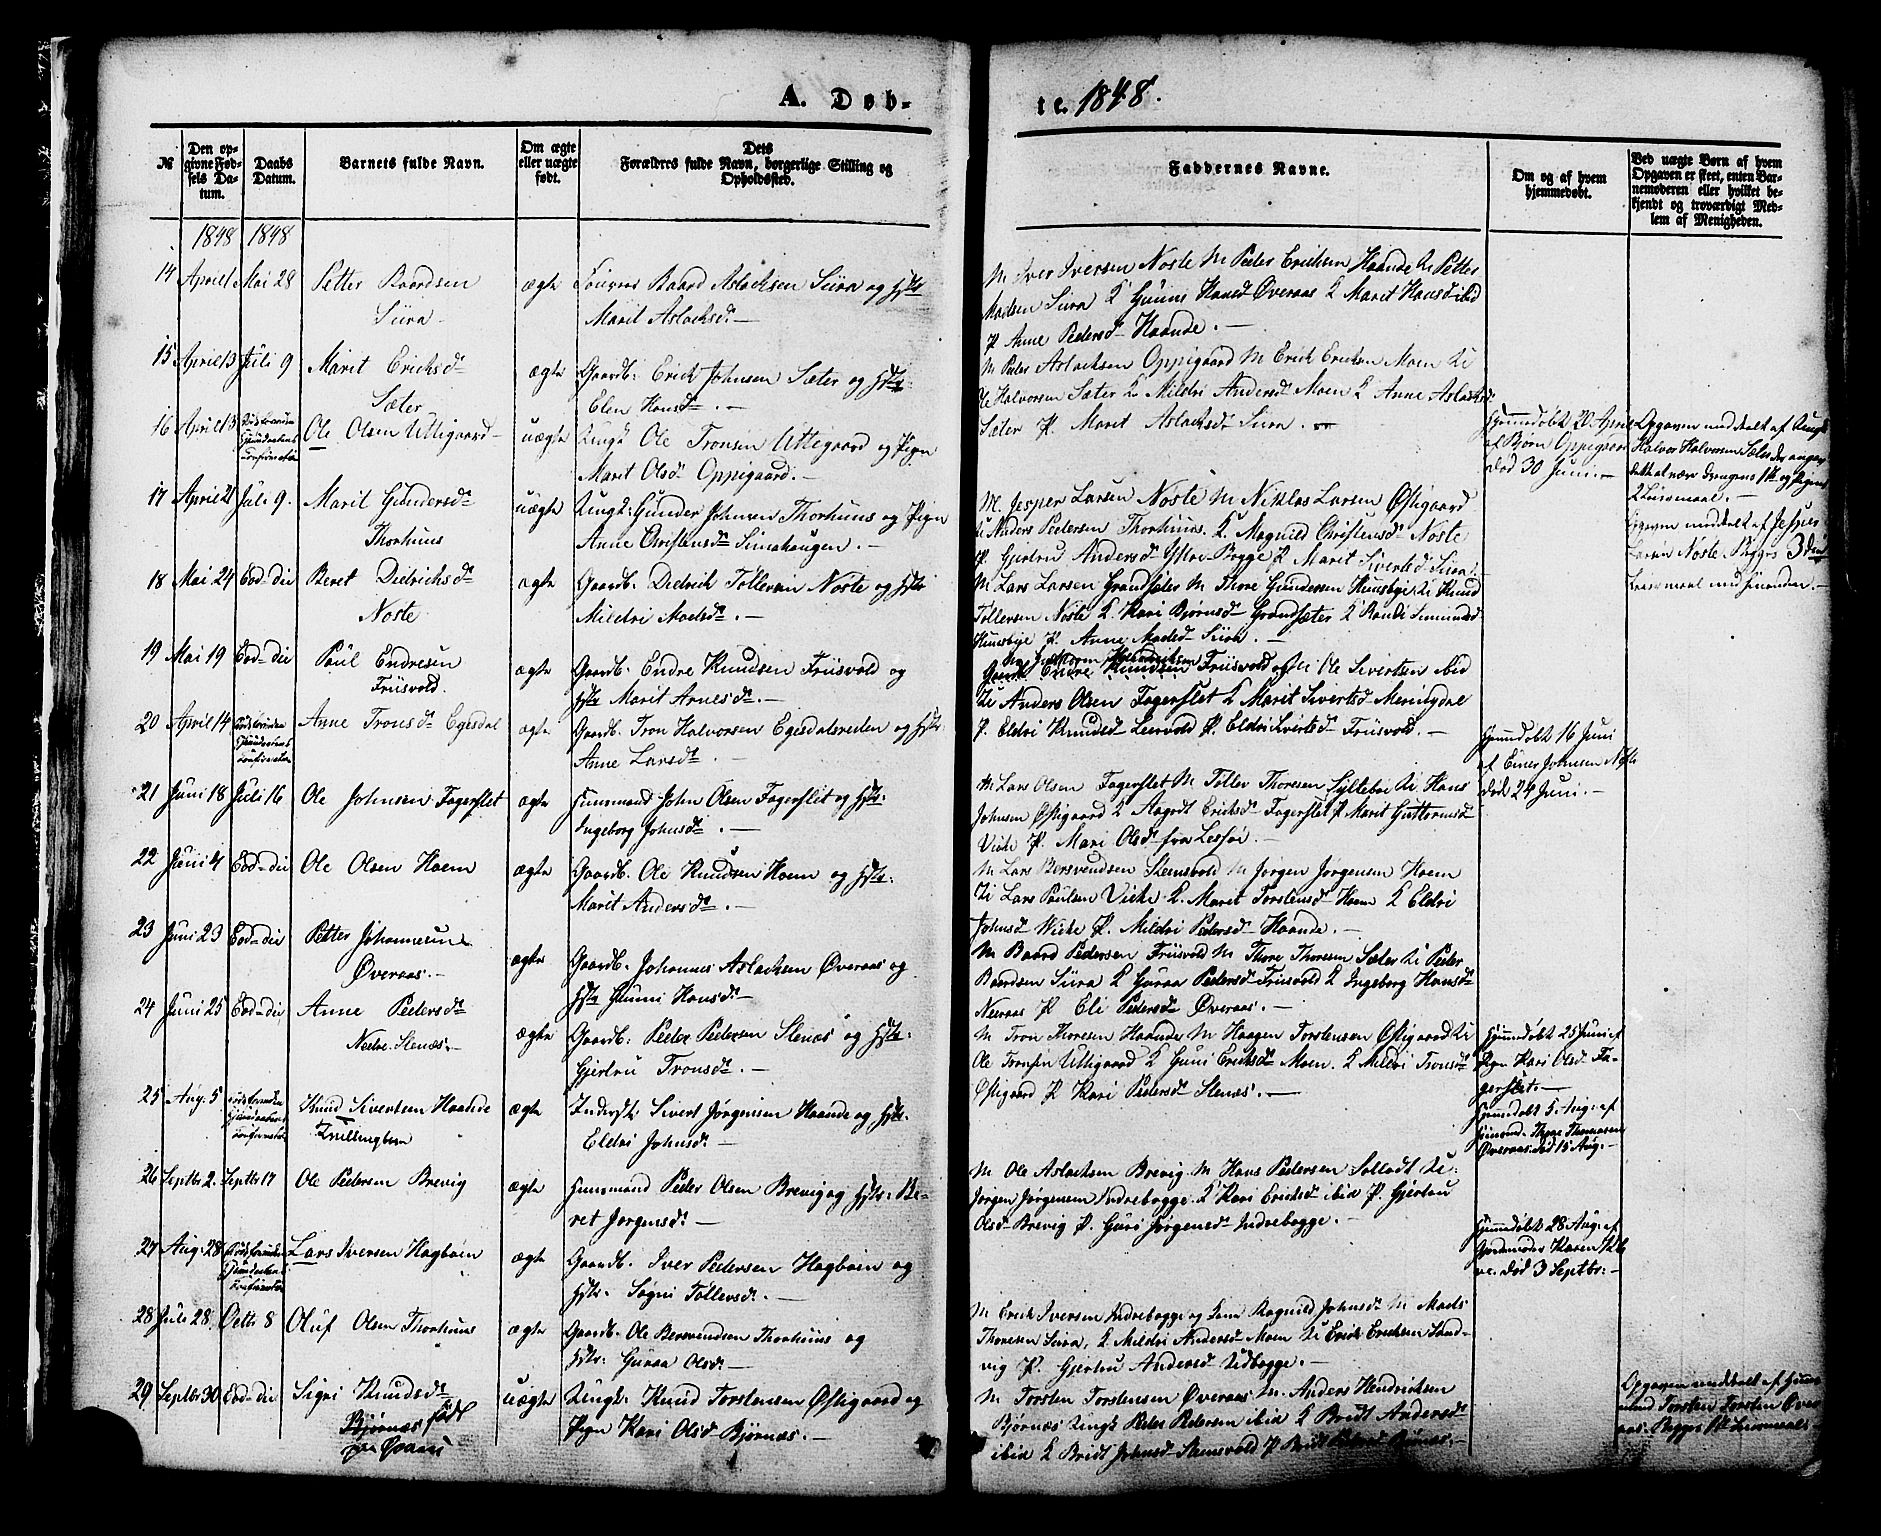 A. Døb-
te 1848.
№
Den op-
givne Fød-
sels Da-
tum.
Daabs
Datum.
Barnets fulde Navn.
Om ægte
eller uægte
født.
Dets
Forældres fulde Navn, borgerlige Stilling og
Opholdssted.
Faddernes Navne.
Om og af hvem
hjemmedøbt.
Ved uægte Børn af hvem
Opgaven er skeet, enten Bar-
nemoderen eller hvilket be-
kjendt og troværdigt Med-
lem af Menigheden.
1848 1848
14 April 1 Mai 28 Petter Baardsen ægte Baard Aslachsen Siira og Hstr
Siira Marit Aslachsd. —
M Iver Iversen Noste M Peder Erichsen Haande U Petter
Madsen Siira K Guuni Hansd Øveraas K Marit Hansd ibid
P Anne Pedersd Haande. —
15 April 13 Juli 9 Marit Erichsd ægte Gaardb: Erich Johnsen Sæter og Hstr
Sæter Elen Hansd. —
M Peder Aslachsen Oppigaard M Erich Erichsen Moen U
Ole Halvorsen Sæter K Mildri Andersd Moen K Anne Aslachsd
Sæter P. Marit Aslachsd Siira. —
16 April 13 Ole Olsen Uttigaard uægte Ungk Ole Tronsen Uttigaard og Pigen
Marit Olsd Oppigaard. —
Hjemmedøbt 20 April
af Bjørn Oppigaard
død 30 Juni. —
Opgaven meddelt af Ungk
Halvor Halvorsen Sæter der angav
dette at være Drengens 1ste og Pigens
2 Leiermaal. —
17 April 21 Juli 9. Marit Gundersd uægte Ungk: Gunder Johnsen Thorhuus og Pigen
Thorhuus Anne Christensd Siirahaugen. —
M. Jesper Larsen Noste M Niklas Larsen Østigaard
U Anders Pedersen Thorhuus. K. Magnild Christensd Noste
P. Gjertru Andersd Ytre-Bygge P Marit Sivertsd Siira —
Opgaven meddelt af Jesper
Larsen Noste. Begges 3die
Leiermaal med hinanden. —
18 Mai 24 Eod-die Beret Dietrichsd ægte Gaardb. Dietrich Tollevsen Noste og Hstr
Noste Mildri Madsd. —
M Lars Larsen Grandsæter M Thore Gundersen Huusbye U Knud
Tollevsen Noste K Kari Bjørnsd Grandsæter K Randi
Huusbye P. Anne Madsd Siira. —
19 Mai 19 Eod-die Poul Endresen ægte Gaardb. Endre Knudsen Friisvold og
Friisvold. Hstr Marit Arnesd. —
Endre Knudsen Friisvold og M. Ole Sivertsen ibid
U Anders Olsen Fagerslet K Marit Sivertsd
P. Eldri Knudsd Leervold P. Eldri Sivertsd Friisvold. —
20 April 14 Anne Tronsd Egesdal ægte Gaardb. Tron Halvorsen Egesdalsreden og Hstr.
Anne Larsd. —
Hjemmedøbt 16 Juni
af Einer Johnsen Noste
død 24 Juni. —
21 Juni 18 Juli 16 Ole Johnsen Fagerslet ægte Huusmand John Olsen Fagerslet og Hstr.
Ingeborg Johnsd. —
M Lars Olsen Fagerslet M Toller Thoresen Syltebø U Hans
Johnsen Østigaard K Aagodt Erichsd Fagerslet P Marit Guttormsd
Vicke P. Mari Olsd fra Lessøe. —
22 Juni 4 Eod-die Ole Olsen Hoem ægte Gaardb. Ole Knudsen Hoem og Hstr:
Marit Andersd. —
M Lars Bersvendsen Steensvold M Jørgen Jørgensen Hoem
U Lars Poulsen Vicke K. Marit Torstensd Hoem K Eldri
Johnsd Wicke P. Mildri Pedersd Haande. —
23 Juni 23 Eod-die Petter Johannesen ægte Gaardb. Johannes Aslachsen Øveraas og
Øveraas. — Hstr Guuni Hansd. —
M Baard Pedersen Friisvold M Thore Thoresen Sæter U Peder
Baardsen Siira K Guraa Pedersd Friisvold K Ingeborg Hansd
Neeraas P Eli Pedersd Øveraas. —
24 Juni 25 Eod-die Anne Pedersd ægte Gaardb: Peder Pedersen Slenæs og Hstr:
Nedre-Slenæs. — Gjertru Tronsd. —
M Tron Thoresen Haande M Haagen Torstensen Østigaard U
Ole Tronsen Uttigaard K Guni Erichsd Moen. K Mildri Tronsd
Østigaard P Kari Pedersd Slenæs. —
Hjemmedøbt 25 Juni af
Pigen Kari Olsd Fa-
gerslet. —
25 Aug. 5 Knud Sivertsen Haande ægte Inderst: Sivert Jørgensen Haande og Hstr.
Tvillingbarn Eldri Johnsd. —
Hjemmedøbt 5 Aug: af
Thore Thomasen
Øveraas. død 15 Aug. —
26 Septbr 2. Septbr 17 Ole Pedersen Brevig ægte Huusmand Peder Olsen Brevig og Hstr: Be-
ret Jørgensd. —
M Ole Aslachsen Brevig M Hans Pedersen Solladt U:
Jørgen Jørgensen Indrebygge K Kari Erichsd ibid P. Gjertru
Olsd Brevig P. Guri Jørgensd Indrebygge. —
27 Aug. 28 Lars Iversen Hagbøen ægte Gaardb. Iver Pedersen Hagbøen og
Hstr. Søgni Tollevsd. —
Hjemmedøbt 28 Aug. af
Gjordemoder Karen
død 3 Septbr: —
28 Juli 28. Octbr 8 Oluf Olsen Thorhuus ægte Gaardb: Ole Bersvendsen Thorhuus og
Hstr: Guraa Olsd. —
M Erich Iversen Indrebygge og Kone Ragnild Johnsd M Mads
Thoresen Siira, K Mildri Andersd Moen U Erich Erichsen Sand-
vig P. Gjertru Andersd Utbygge. —
29 Septbr 30 Eod-die Sigri Knudsd uægte Ungk: Knud Torstensen Østigaard og
Bjørnæs født Pigen Kari Olsd Bjørnæs. —
paa Øveraas
M Torsten Torstensen Øveraas M. Anders Hendrichsen
Bjørnæs Ungk Peder Pedersen ibid K Bridt Andersd
ibid K Bridt Johnsd Steensvold P Bridt Pedersd Bjørnæs. —
Opgaven meddelt af Huus-
mand Torsten Torsten Øver-
aas. Begges 1ste Leiermaal